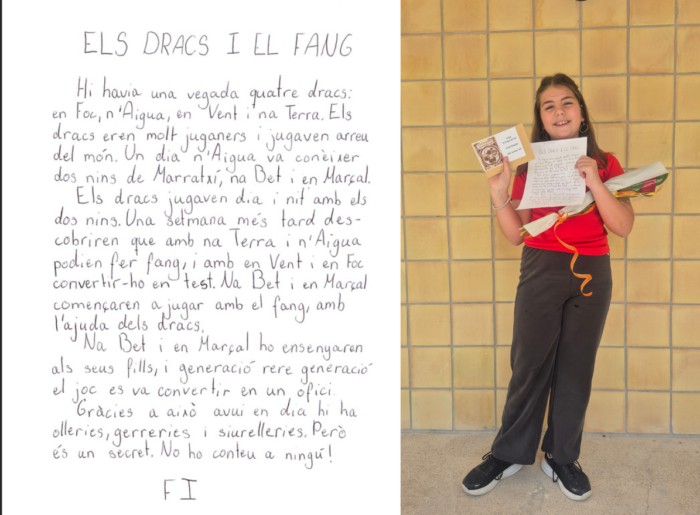 ELS DRACS I EL FANG
Hi havia una vegada quatre dracs:
en Foc, n'Aigua, en Vent i na Terra. Els
dracs eren molt juganers i jugaven arreu
del món. Un dia n'Aigua va conèixer
dos nins de Marratxí, na Bet i en Marçal.
Els dracs jugaven dia i nit amb els
dos nins. Una setmana més tard des-
cobriren que amb na Terra i n'Aigua
podien fer fang, i amb en Vent i en Foc
convertir-ho en test. Na Bet i en Marçal
començaren a jugar amb el fang, amb
l'ajuda dels dracs.
Na Bet i en Marçal ho ensenyaren
als seus fills, i generació rere generació
el joc es va convertir en un ofici.
Gràcies a això avui en dia hi ha
olleries, gerreries i siurelleries. Però
és un secret. No ho conteu a ningú!
FI